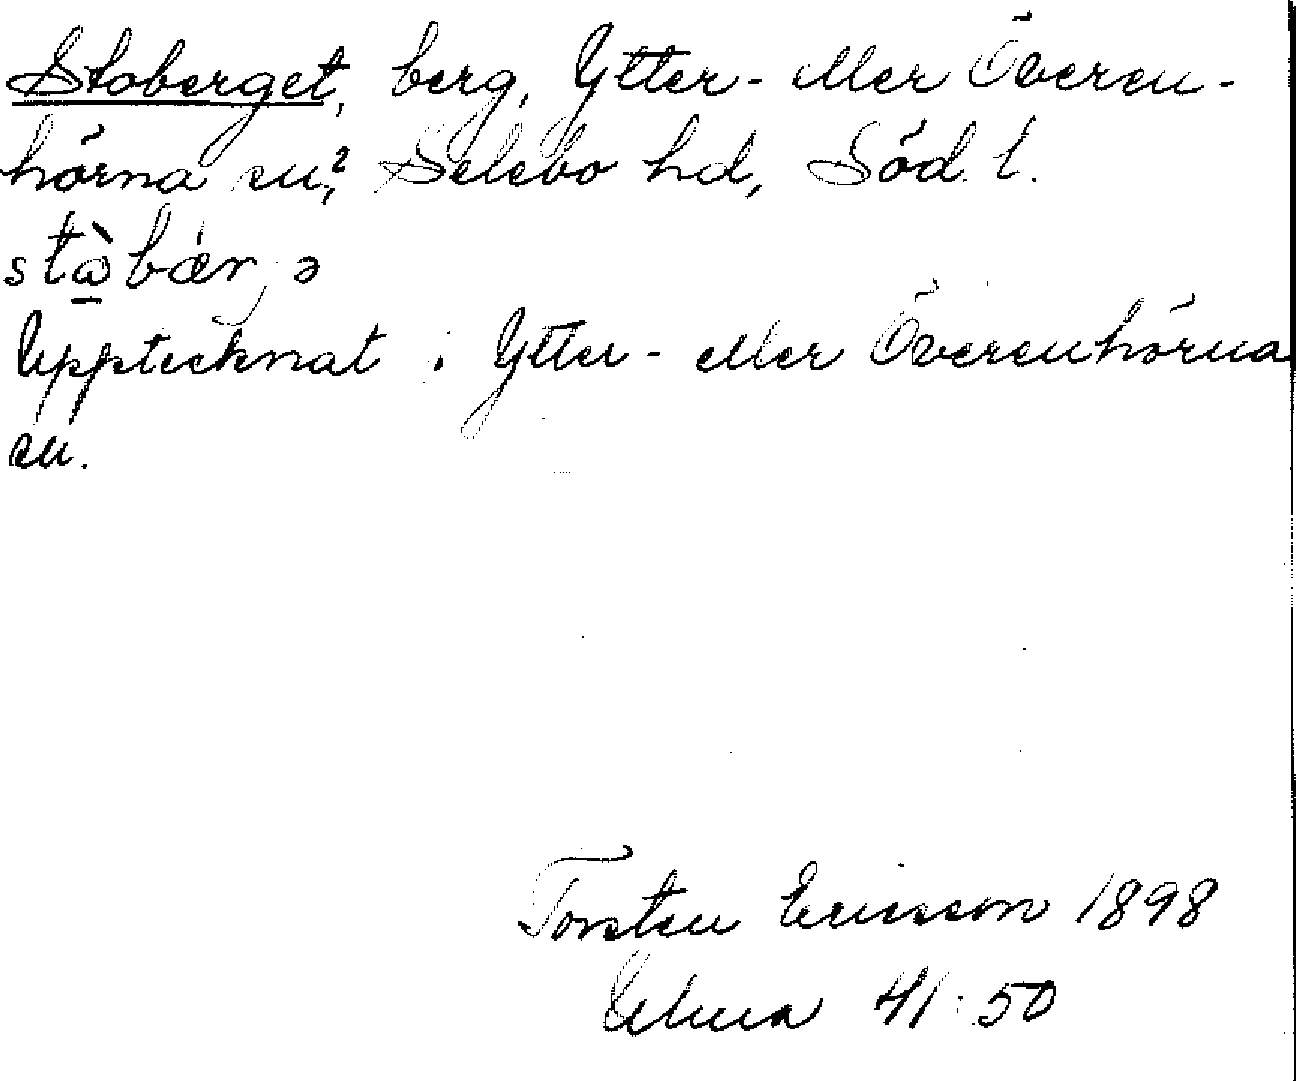 Stoberget, berg, Ytter- eller Överen-
hörna sn,? Selebo hd, Söd. l.
Upptecknat i Ytter- eller Överenhörna
sn.
Torsten Ericsson 1898
41:50